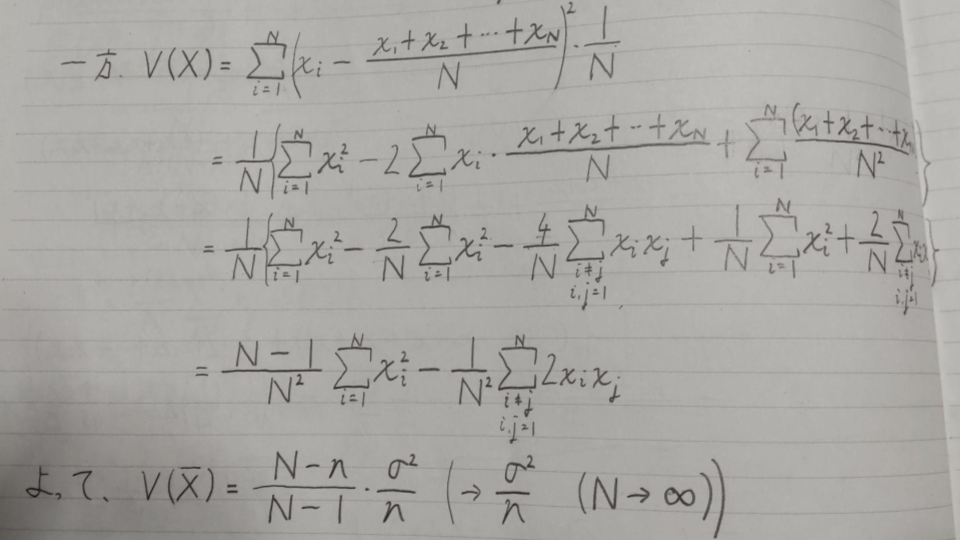 一方、V(X) = \sum_{i=1}^{N} \left( x_i - \frac{x_1 + x_2 + \cdots + x_N}{N} \right)^2 \cdot \frac{1}{N}
= \frac{1}{N} \left\{ \sum_{i=1}^{N} x_i^2 - 2 \sum_{i=1}^{N} x_i \cdot \frac{x_1 + x_2 + \cdots + x_N}{N} + \sum_{i=1}^{N} \frac{(x_1 + x_2 + \cdots + x_N}{N^2} \right\}
= \frac{1}{N} \left\{ \sum_{i=1}^{N} x_i^2 - \frac{2}{N} \sum_{i=1}^{N} x_i^2 - \frac{4}{N} \sum_{\substack{i \neq j \\ i,j=1}}^{N} x_i x_j + \frac{1}{N} \sum_{i=1}^{N} x_i^2 + \frac{2}{N} \sum_{\substack{i \neq j \\ i,j=1}}^{N} x_i x_j \right\}
= \frac{N-1}{N^2} \sum_{i=1}^{N} x_i^2 - \frac{1}{N^2} \sum_{\substack{i \neq j \\ i,j=1}}^{N} 2 x_i x_j
よって、V(\overline{X}) = \frac{N-n}{N-1} \cdot \frac{\sigma^2}{n} \left( \to \frac{\sigma^2}{n} \quad (N \to \infty) \right)